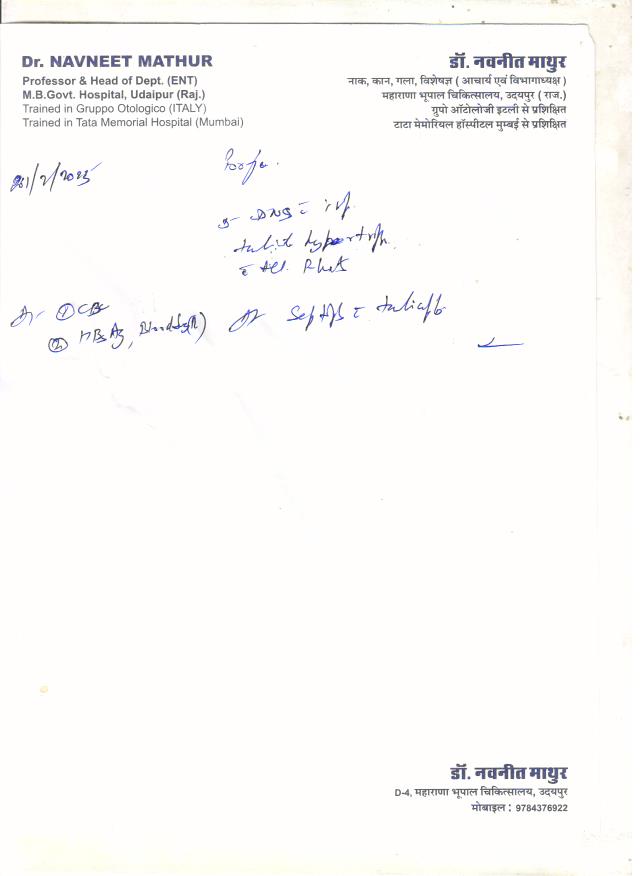 Dr. NAVNEET MATHUR
Professor & Head of Dept. (ENT)
M.B.Govt. Hospital, Udaipur (Raj.)
Trained in Gruppo Otologico (ITALY)
Trained in Tata Memorial Hospital (Mumbai)
डॉ. नवनीत माथुर
नाक, कान, गला, विशेषज्ञ ( आचार्य एवं विभागाध्यक्ष )
महाराणा भूपाल चिकित्सालय, उदयपुर ( राज.)
ग्रुपो ऑटोलोजी इटली से प्रशिक्षित
टाटा मेमोरियल हॉस्पीटल मुम्बई से प्रशिक्षित
/2/2025
DNS
All.
① CBC
② HBsAg,
डॉ. नवनीत माथुर
D-4, महाराणा भूपाल चिकित्सालय, उदयपुर
मोबाइल : 9784376922